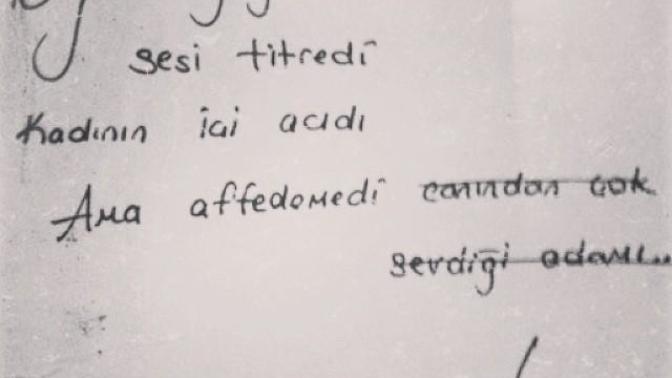 sesi titredi
Kadının içi acıdı
Ama affedemedi canından çok
sevdiği adamı..